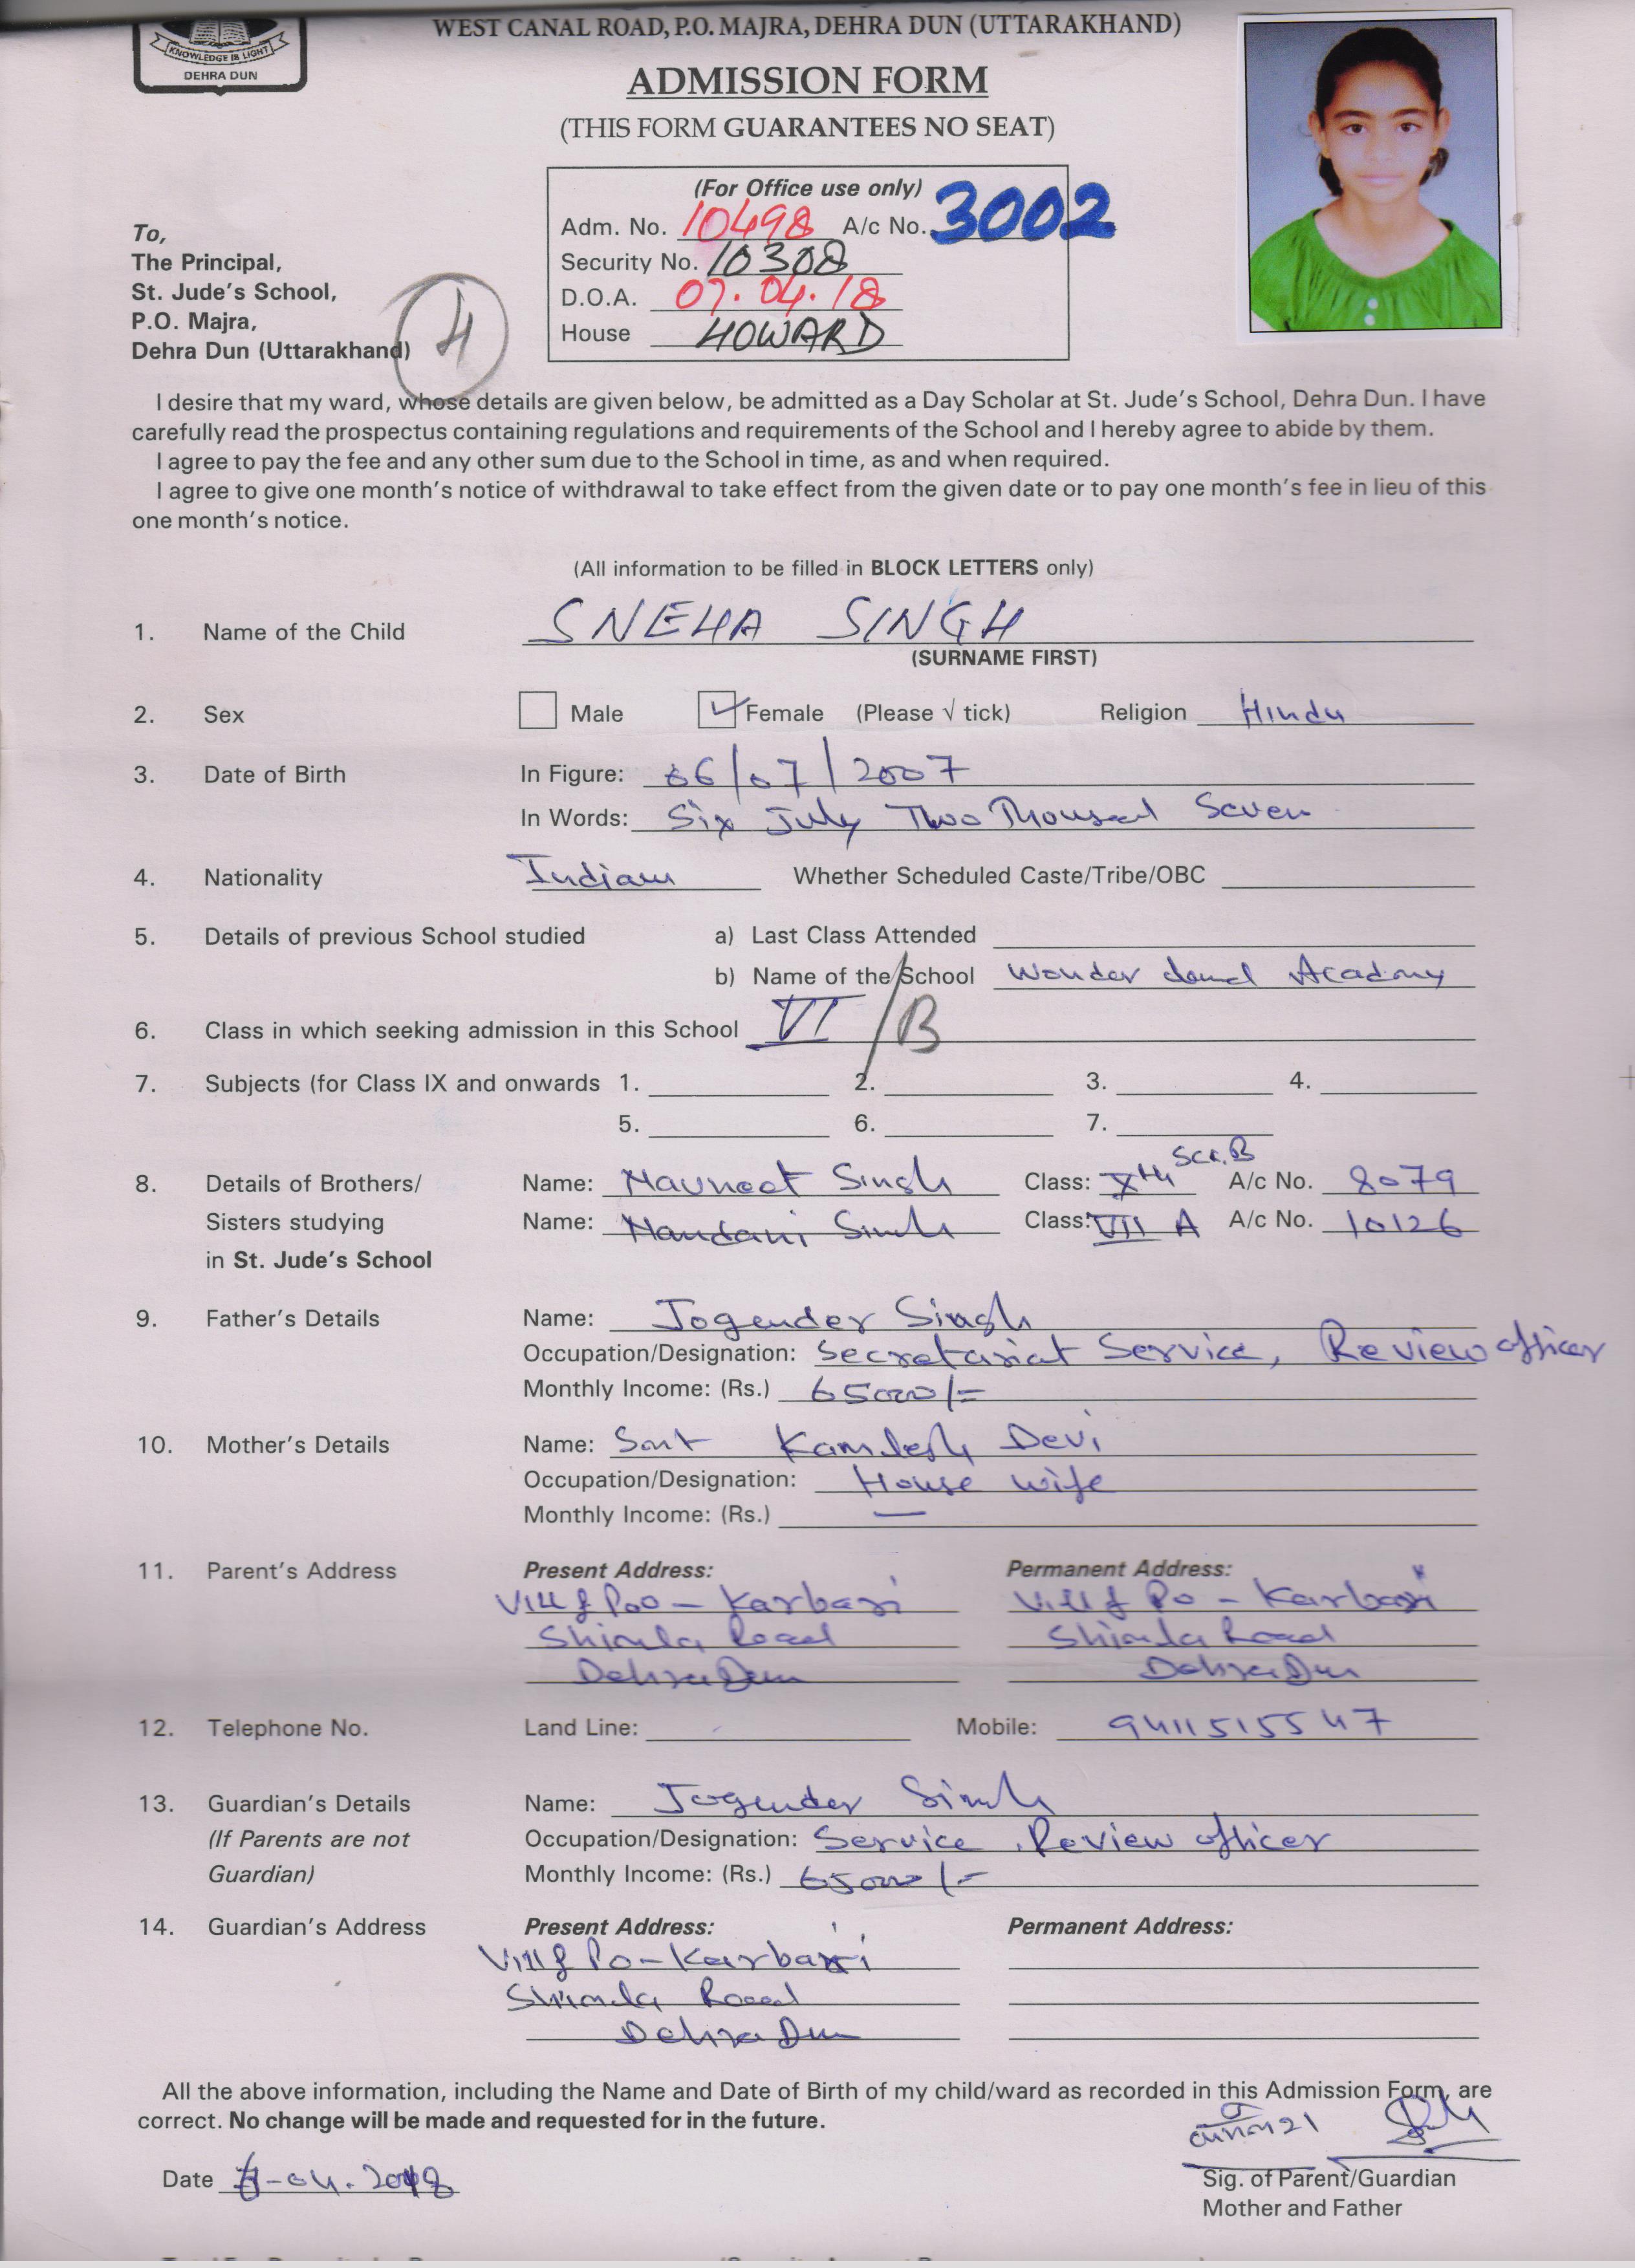 KNOWLEDGE IS LIGHT
DEHRA DUN
WEST CANAL ROAD, P.O. MAJRA, DEHRA DUN (UTTARAKHAND)
ADMISSION FORM
(THIS FORM GUARANTEES NO SEAT)
(For Office use only)
Adm. No. 10498 A/c No. 3002
Security No. 10308
D.O.A. 07.04.18
House HOWARD
To,
The Principal,
St. Jude's School,
P.O. Majra,
Dehra Dun (Uttarakhand)
4
I desire that my ward, whose details are given below, be admitted as a Day Scholar at St. Jude's School, Dehra Dun. I have
carefully read the prospectus containing regulations and requirements of the School and I hereby agree to abide by them.
I agree to pay the fee and any other sum due to the School in time, as and when required.
I agree to give one month's notice of withdrawal to take effect from the given date or to pay one month's fee in lieu of this
one month's notice.
(All information to be filled in BLOCK LETTERS only)
1. Name of the Child SNEHA SINGH
(SURNAME FIRST)
2. Sex Male Female (Please √ tick) Religion Hindu
3. Date of Birth In Figure: 06/07/2007
In Words: Six July Two Thousand Seven
4. Nationality Indian Whether Scheduled Caste/Tribe/OBC
5. Details of previous School studied a) Last Class Attended
b) Name of the School Wonder Academy
6. Class in which seeking admission in this School VI /B
7. Subjects (for Class IX and onwards 1. 2. 3. 4.
5. 6. 7.
8. Details of Brothers/ Name: Navneet Singh Class: Xth Sec. B A/c No. 8079
Sisters studying Name: Nandani Singh Class: VII A A/c No. 10126
in St. Jude's School
9. Father's Details Name: Jogender Singh
Occupation/Designation: Secretariat Service, Review officer
Monthly Income: (Rs.) 65000/=
10. Mother's Details Name: Smt Kamlesh Devi
Occupation/Designation: House wife
Monthly Income: (Rs.) —
11. Parent's Address Present Address: Permanent Address:
Vill & Po - Karbari Vill & Po - Karbari
Shimla Road Shimla Road
DehraDun DehraDun
12. Telephone No. Land Line: Mobile: 9411515547
13. Guardian's Details Name: Jogender Singh
(If Parents are not Occupation/Designation: Service, Review officer
Guardian) Monthly Income: (Rs.) 65000/-
14. Guardian's Address Present Address: Permanent Address:
Vill & Po - Karbari
Shimla Road
DehraDun
All the above information, including the Name and Date of Birth of my child/ward as recorded in this Admission Form, are
correct. No change will be made and requested for in the future.
Date -04.2018
Sig. of Parent/Guardian
Mother and Father